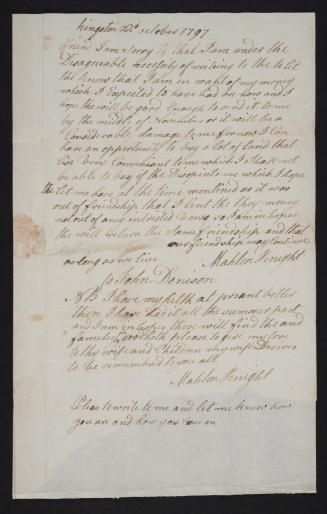 Kingston 22d october 1797
friend I am Sorry that I am under the
Disagreeable necessity of writing to the to let
the know that I am in want of my money
which I Expected to have had or now and I
hope the will be good Enough to send it to me
by the middle of November or it will be a
Considerable damage to me for now I Can
have an opportunity to buy a lot of land that
lies Very Convenient to me which I shall not
be able to buy if the Disopints me which I hope
the let me have at the time mentined as it was
out of friendship that I lent the they money
not out of any intrested Vewes so I am in hopes
the will return the Same friendship and that
our friendship may Continue
as long as we live
Mahlon Knight
to John Denison
NB I have my hilth at porsant better
then I have had it all the summer past
and I am in hopes these will find the and
familey good helth please to give my love
to thy wife and Children my wife Desires
to be remembred to you all
Mahlon Knight
Pleas to write to me and let me know how
you an and how you Com on